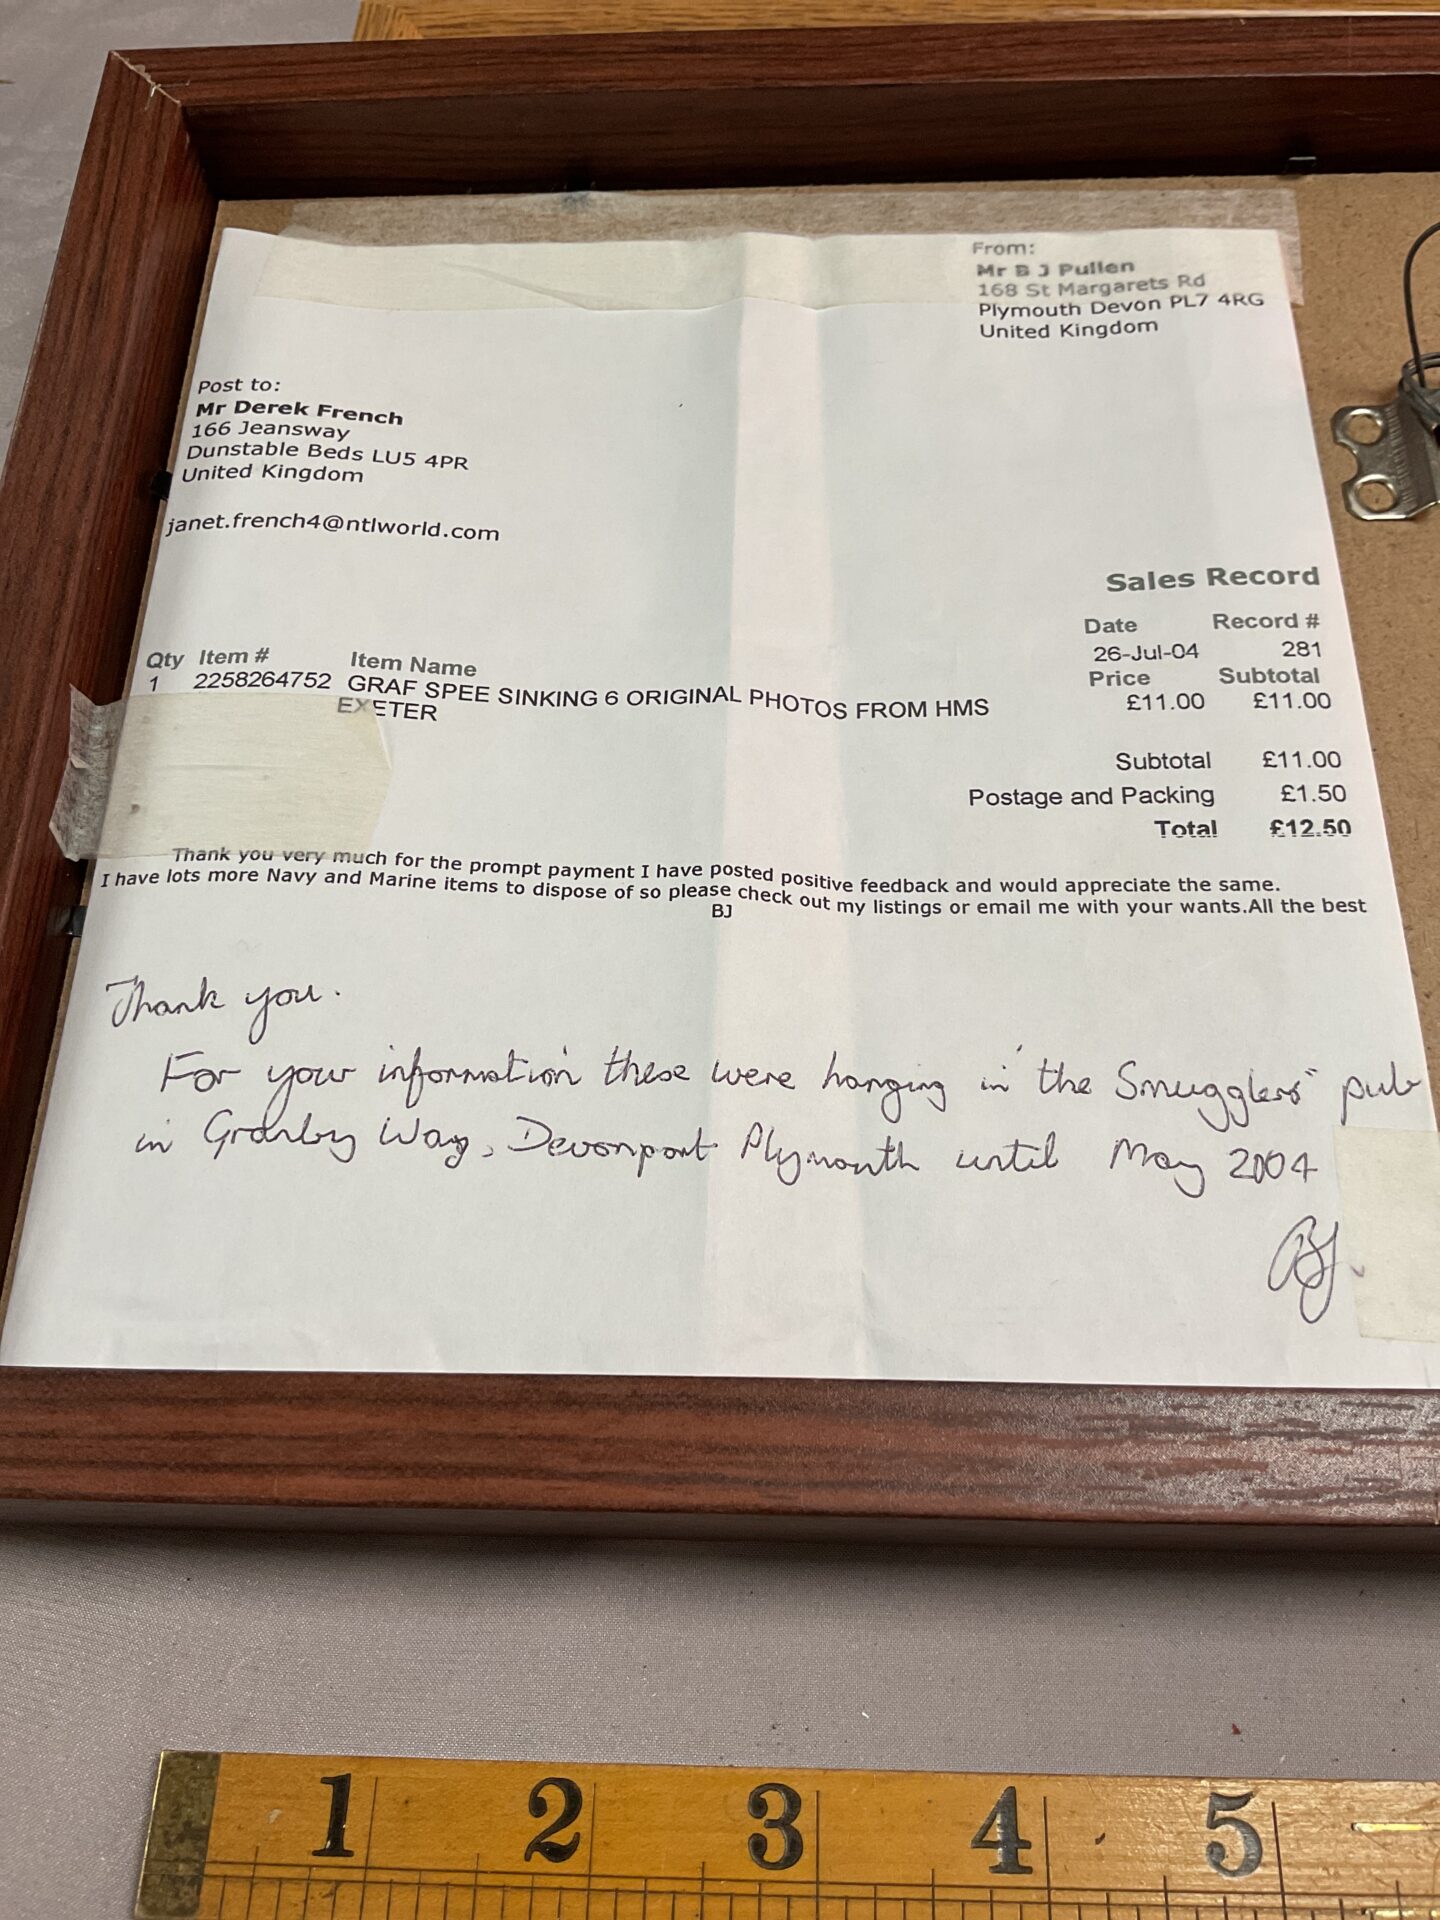 From:
Mr B J Pullen
168 St Margarets Rd
Plymouth Devon PL7 4RG
United Kingdom
Post to:
Mr Derek French
166 Jeansway
Dunstable Beds LU5 4PR
United Kingdom
janet.french4@ntlworld.com
Sales Record
Date Record #
26-Jul-04 281
Qty Item # Item Name Price Subtotal
1 2258264752 GRAF SPEE SINKING 6 ORIGINAL PHOTOS FROM HMS £11.00 £11.00
EXETER
Subtotal £11.00
Postage and Packing £1.50
Total £12.50
Thank you very much for the prompt payment I have posted positive feedback and would appreciate the same.
I have lots more Navy and Marine items to dispose of so please check out my listings or email me with your wants.All the best
BJ
Thank you.
For your information these were hanging in 'the Smugglers" pub
in Granby Way, Devonport Plymouth until May 2004
BJ.
1 2 3 4 5